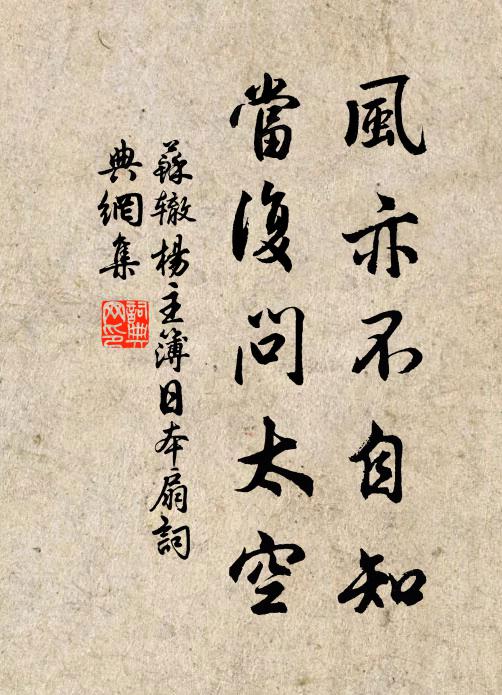 風亦不自知
當復問太空
蘇辙楊主簿日本扇詞
典網集
詞典
网印